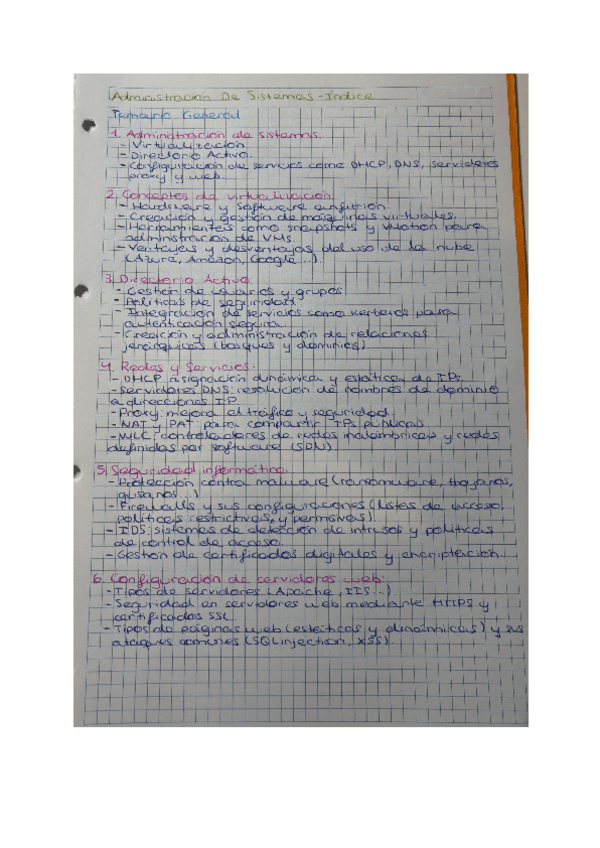 Administración De Sistemas - Índice
Temario General
1. Administración de sistemas.
- Virtualización
- Directorio Activo.
- Configuración de servicios como DHCP, DNS, servidores
proxy y web.
2. Conceptos de virtualización
- Hardware y Software anfitrión.
- Creación y gestión de máquinas virtuales.
- Herramientas como snapshots y vMotion para
administración de VMs
- Ventajas y desventajas del uso de la nube
(Azure, Amazon, Google...)
3. Directorio Activo
- Gestión de usuarios y grupos
- Políticas de seguridad
- Integración de servicios como kerberos para
autenticación segura.
- Creación y administración de relaciones
jerárquicas (bosques y dominios)
4. Redes y Servicios.
- DHCP: asignación dinámica y estática de IPs
- Servidores DNS: resolución de nombres de dominio
a direcciones IP.
- Proxy: mejora el tráfico y seguridad.
- NAT y PAT: para compartir IPs públicas
- WLC: controladores de redes inalámbricas y redes
definidas por software (SDN)
5. Seguridad informática.
- Protección contra malware (ransomware, troyanos,
gusanos...)
- Firewalls y sus configuraciones (listas de acceso,
políticas restrictivas y permisivas).
- IDS: sistemas de detección de intrusos y políticas
de control de acceso.
- Gestión de certificados digitales y encriptación
6. Configuración de servidores web:
- Tipos de servidores (Apache, IIS...)
- Seguridad en servidores web mediante HTTPS y
certificados SSL
- Tipos de páginas web (estáticas y dinámicas) y sus
ataques comunes (SQL injection, XSS).